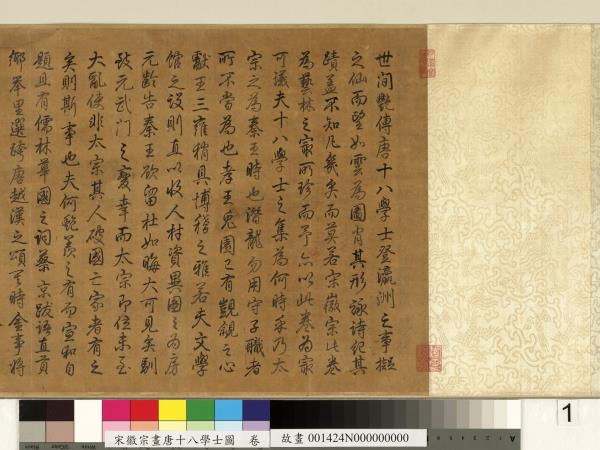 世間艷傳唐十八學士登瀛洲之事擬
之仙而望如雲為圖肖其形詠詩紀其
蹟蓋不知凡幾矣而莫若宋徽宗此卷
為藝林之冣所珍而予亦以此卷為冣
可議夫十八學士之集為何時乎乃太
宗之為秦王時也潛龍勿用守子職者
所不當為也孝王兔園已有覬覦之心
獻王三雍稍具博稽之雅若夫文學
館之設則直以收人材資異圖之為房
元齡告秦王欲留杜如晦大可見矣馴
致元武門之變幸而太宗即位未至
大亂使非太宗其人破國亡家者有之
矣則斯事也夫何艷羨之有而宣和自
題且有儒林華國之詞蔡京跋語直贡
鄉舉里選跨唐越漢之頌其時金事將
宋徽宗畫唐十八學士圖 卷
故畫 001424N000000000
1